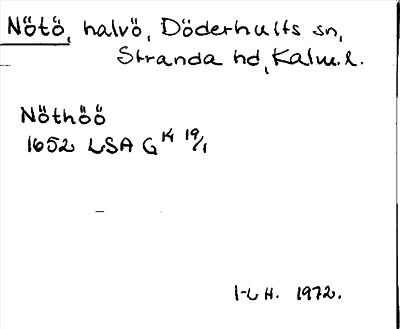 Nötö, halvö, Döderhults sn,
Stranda hd, Kalm. l.
Nöthöö
1652 LSA G K 19/1
I-L H. 1972.